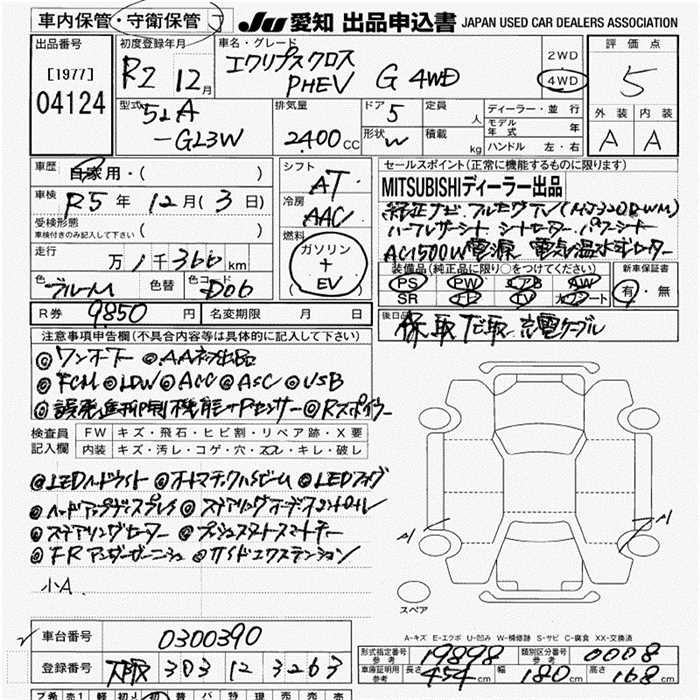 車内保管・守衛保管
JU 愛知 出品申込書 JAPAN USED CAR DEALERS ASSOCIATION
出品番号 [1977] 04124
初度登録年月 R2 12月
車名・グレード エクリプスクロス PHEV G 4WD
2WD 4WD
評価点 5
外装 内装
A A
型式 5LA-GL3W
排気量 2400cc
ドア 5
形状 W
定員 人
積載 kg
ディーラー・並行
モデル年式 年
ハンドル 左・右
車歴 自家用・( )
車検 R5年12月(3日)
受検形態 車検付きのみ記入して下さい ( )
走行 万1千366km
色 ブルーM 色替 色コード D06
シフト AT
冷房 AAC
燃料 ガソリン+EV
( )
セールスポイント(正常に機能するものに限ります)
MITSUBISHIディーラー出品
純正ナビ フルセグTV(MJ320D-WM)
ハーフレザーシート シートヒーター パワーシート
AC1500W電源 電気温水式ヒーター
装備品(純正品に限り○をつけてください)
PS PW エアB AW
SR ナビ TV カワシート
新車保証書 有・無
R券 9850円 名変期限 月 日
後日品 保 取 TV取 充電ケーブル
注意事項申告欄(不具合内容等は具体的に記入して下さい)
◎ワンオーナー ◎AAネット出品
◎FCM ◎LDW ◎ACC ◎ASC ◎USB
◎誤発進抑制機能+Pセンサー ◎Rスポイラー
検査員記入欄
FW キズ・飛石・ヒビ割・リペア跡・X要
内装 キズ・汚レ・コゲ・穴・スレ・キレ・破レ
◎LEDヘッドライト ◎オートマチックハイビーム ◎LEDフォグ
◎ヘッドアップディスプレイ ◎ステアリングオーディオコントロール
◎ステアリングヒーター ◎プッシュスタートスマートキー
◎FRアンダーガーニッシュ ◎サイドエクステンション
小A
A
A
スペア
A-キズ E-エクボ U-凹み W-補修跡 S-サビ C-腐食 XX-交換済
車台番号 0300390
登録番号 大阪 303 12 3263
形式指定番号 参考 19898
類別区分番号 参考 0008
車庫証明用 参考 長さ 454cm 幅 180cm 高さ 168cm